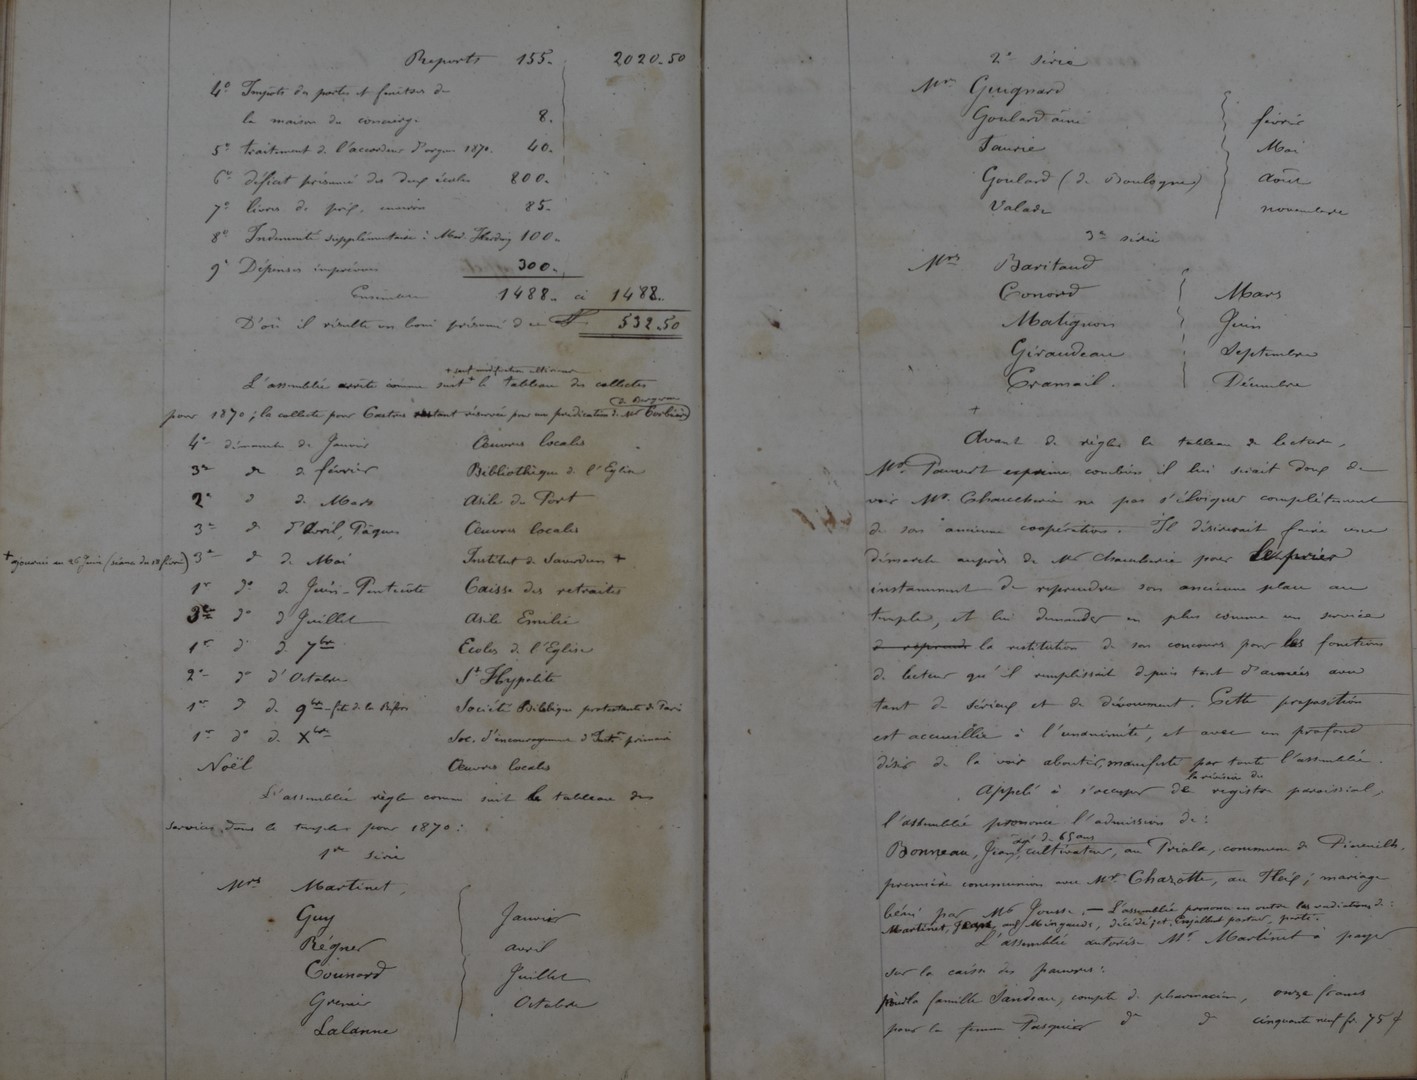 Reports 155. 2020.50
4° Impôts des portes et fenêtres de
la maison du concierge 8.
5° traitement de l'accordeur d'orgue 1870. 40.
6° déficit présumé des deux écoles 800.
7° livres de prix, environ 85.
8° Indemnité supplémentaire à Mad. 100.
9° Dépenses imprévues 300.
Ensemble 1488. ci 1488.
D'où il résulte un boni présumé de 532.50
+ sauf modification ultérieure
L'assemblée arrête comme suit + le tableau des collectes
pour 1870 ; la collecte pour Castres restant réservée pour une prédication de Mr Corbière (de Bergerac)
4e dimanche de Janvier Œuvres locales
3e do de février Bibliothèque de l'Eglise
2e do de Mars Asile du Port
3e do d'Avril, Pâques Œuvres locales
+ ajournée au 26 Juin (séance du 18 février) 3e do de Mai Institut de Saverdun +
1er do de Juin - Pentecôte Caisse des retraites
3e do d Juillet Asile Emilie
1er do de 7bre Ecoles de l'Eglise
2e do d'Octobre St Hypolite
1er do de 9bre - fête de la Réfon Société Biblique protestante de Paris
1er do de Xbre Soc. d'encouragement d'Instr. primaire
Noël Œuvres locales
L'assemblée règle comme suit le tableau des
services dans le temple pour 1870 :
1re série
Mrs Martinet,
Guy Janvier
Régner avril
Counord Juillet
Grenier Octobre
Lalanne
2e série
Mrs Guignard
Goulard aîné février
Taurie Mai
Goulard (de Boulogne) Août
Valade novembre
3e série
Mrs Baritaud
Conord Mars
Matignon Juin
Giraudeau Septembre
Cramail. Décembre
+
Avant de régler le tableau de lecture,
Mr. Pauvert exprime combien il lui serait doux de
voir Mr. ne pas s'éloigner complètement
de son ancienne coopération. Il désirerait faire une
démarche auprès de Mr pour le prier
instamment de reprendre son ancienne place au
temple, et lui demander en plus comme un service
de reprendre la restitution de son concours pour les fonctions
de lecteur qu'il remplissait depuis tant d'années avec
tant de sérieux et de dévouement. Cette proposition
est accueillie à l'unanimité, et avec un profond
désir de la voir aboutir, manifesté par toute l'assemblée.
Appelé à s'occuper de la révision du registre paroissial,
l'assemblée prononce l'admission de :
Bonneau, Jean, âgé de 65 ans, cultivateur, au Priola, commune de Pineuilh,
première communion avec Mr Chazotte, au Fleix ; mariage
béni par Mr Jousse. — L'assemblée prononce en outre les radiations de :
Martinet, Jean, aux Mingauds, décédé, et pasteur, parti.
L'assemblée autorise Mr Martinet à payer
sur la caisse des pauvres :
pour la famille Sandeau, compte de pharmacien, onze francs
pour la femme Pasquier do do cinquante neuf fr. 75 c